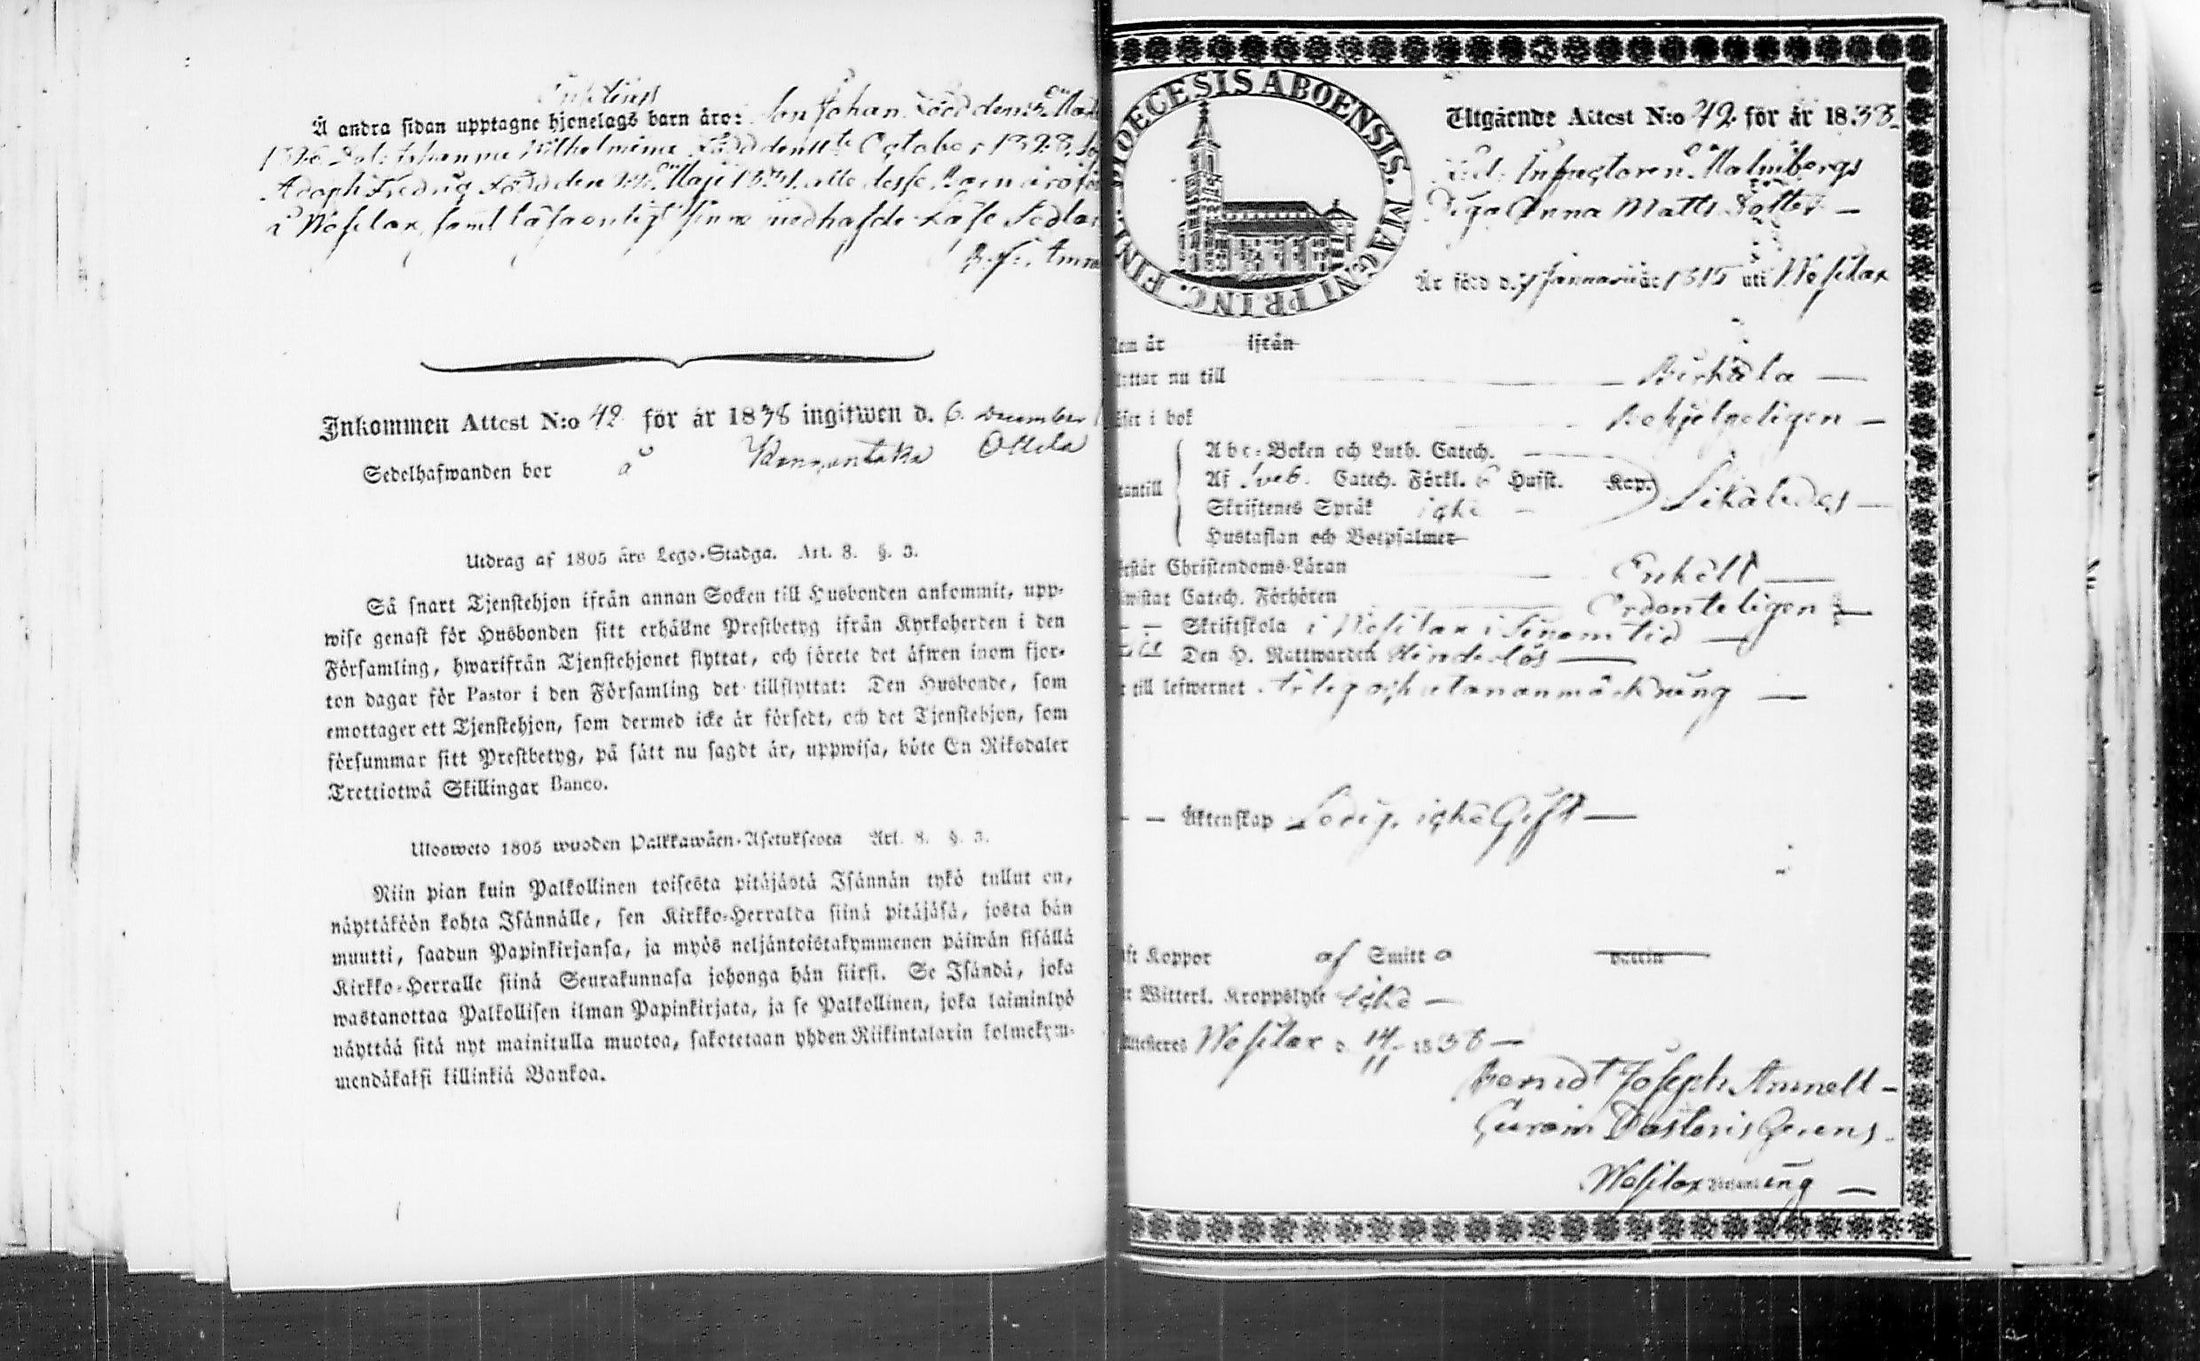 Å andra sidan upptagne hjonelags barn äro: Son Johan född den
Wilhelmina född den 11te October 1828.
Adoph Fredrig född den Maji alle desse Barn äro
i Wåfilax, samt läsa enligt
Inkommen Attest N:o 42 för år 1838 ingifwen d. 6 December
Sedelhafwanden bor å Ottila
Utdrag af 1805 års Lego-Stadga. Art. 8. §. 3.
Så snart Tjenstehjon ifrån annan Socken till Husbonden ankommit, upp-
wise genast för Husbonden sitt erhållne Prestbetyg ifrån Kyrkoherden i den
Församling, hwarifrån Tjenstehjonet flyttat, och förete det äfwen inom fjor-
ton dagar för Pastor i den Församling det tillflyttat: Den Husbonde, som
emottager ett Tjenstehjon, som dermed icke är försedt, och det Tjenstehjon, som
försummar sitt Prestbetyg, på sätt nu sagdt är, uppwisa, böte En Riksdaler
Trettiotwå Skillingar Banco.
Ulosweto 1805 wuoden Palkkawäen-Asetuksesta Art. 8. §. 3.
Niin pian kuin Palkollinen toisesta pitäjästä Isännän tykö tullut on,
näyttäköön kohta Isännälle, sen Kirkko-Herralda siinä pitäjäsä, josta hän
muutti, saadun Papinkirjansa, ja myös neljäntoistakymmenen päiwän sisällä
Kirkko-Herralle siinä Seurakunnasa johonga hän siirsi. Se Isändä, joka
wastanottaa Palkollisen ilman Papinkirjata, ja se Palkollinen, joka laiminlyö
näyttää sitä nyt mainitulla muotoa, sakotetaan yhden Riikintalarin kolmekym-
mendäkaksi killinkiä Bankoa.
DIOECESIS ABOENSIS. MAGNI PRINC. FINL.
Utgående Attest N:o 42 för år 1838
Malmbergs
Piga Anna Matts dotter
Är född d. 7 Januarii år 1815 uti Wåfilax
år ifrån
nu till Birkala
i bok Behjelpeligen
Abc-Boken och Luth. Catech.
Af Sveb. Catech. Förkl. 6 Hufst. Kap. Likaledes
Skriftenes Språk
Hustaflan och Botpsalmer
Christendoms-Läran Enkelt
Catech. Förhören Ordenteligen
Skriftskola i Wåfilax i sinom tid
Den H. Nattwarden
till lefwernet ärlig och utan anmärkning
Äktenskap Ledig. icke Gift
Koppor af Smitta
Witterl. Kroppslyte icke
Wåfilax d. 14/11 1838
Berndt Joseph Amnell
Pastoris Gerens
Wåfilax Församling